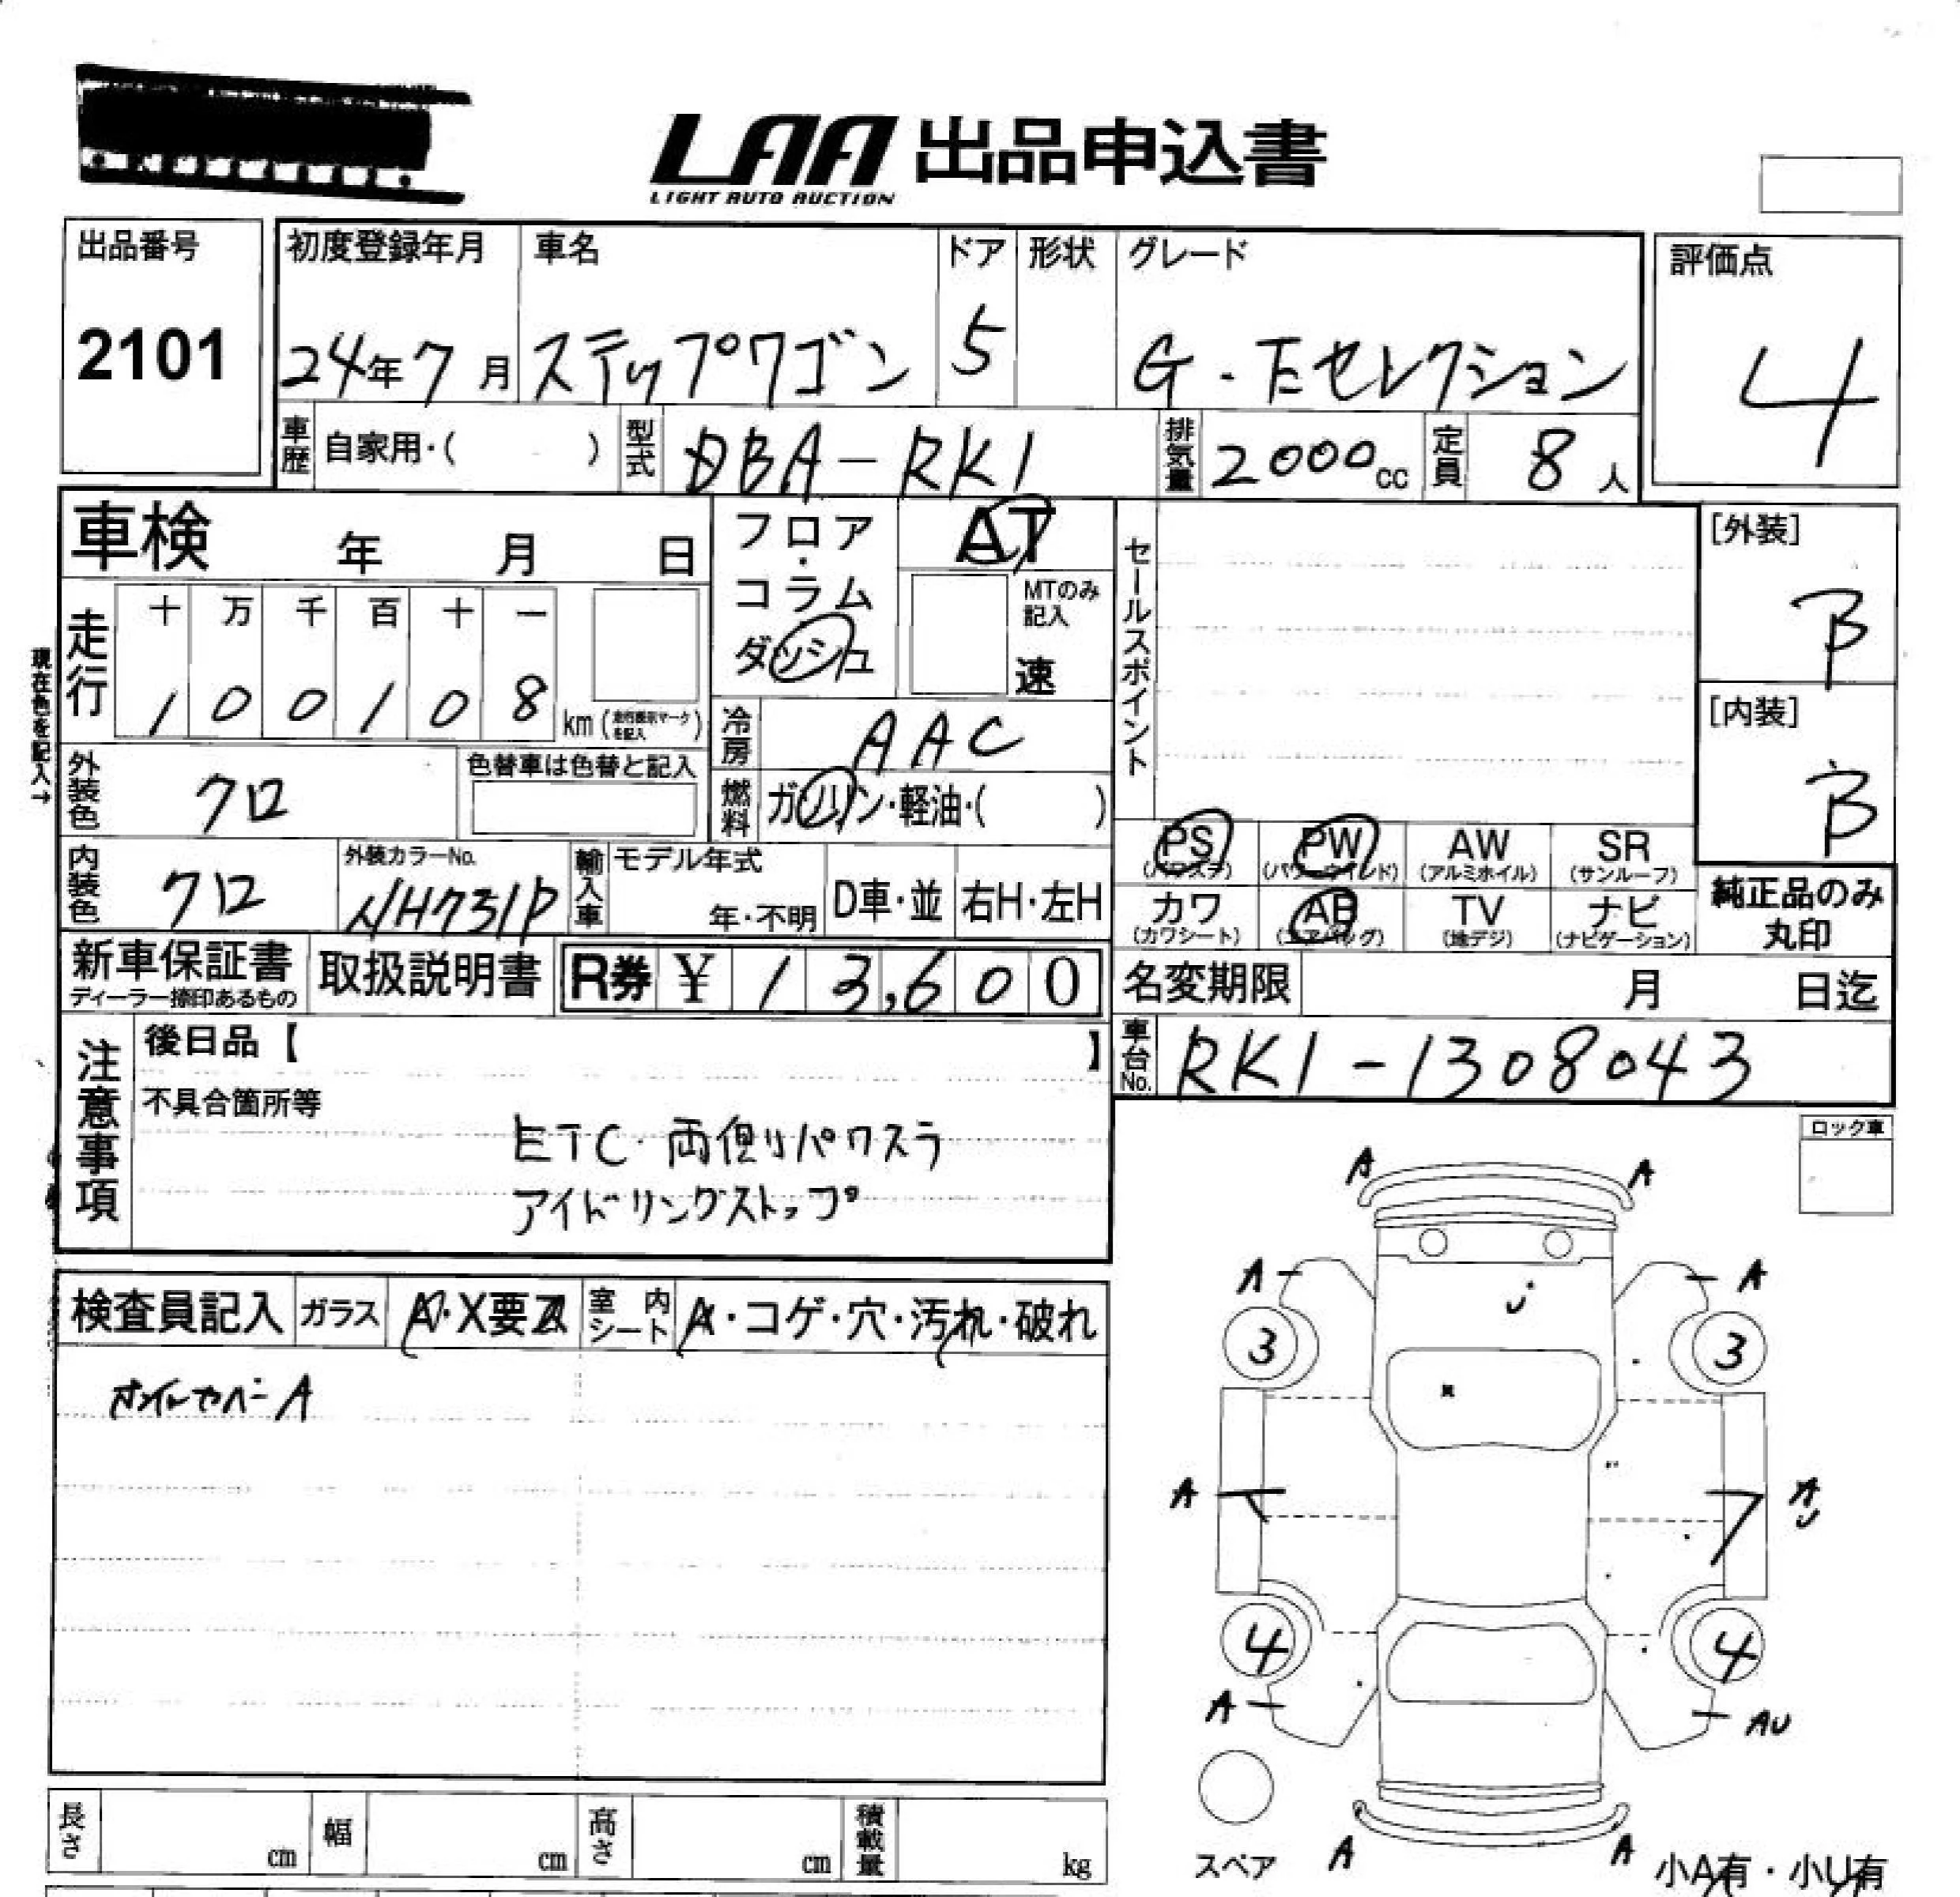 LAA 出品申込書
LIGHT AUTO AUCTION
出品番号
2101
初度登録年月
24年7月
車名
ステップワゴン
ドア
5
形状
グレード
G・Eセレクション
評価点
4
車歴
自家用・( )
型式
DBA-RK1
排気量
2000cc
定員
8人
車検 年 月 日
フロア・コラム
ダッシュ
AT
MTのみ記入
速
セールスポイント
[外装]
B
[内装]
B
現在色を記入→
走行
十 万 千 百 十 一
1 0 0 1 0 8 km (走行表示マークを記入)
冷房
AAC
外装色
クロ
色替車は色替と記入
燃料
ガソリン・軽油・( )
内装色
クロ
外装カラーNo.
NH731P
輸入車
モデル年式
年・不明
D車・並
右H・左H
PS (パワステ)
PW (パワーウインド)
AW (アルミホイル)
SR (サンルーフ)
カワ (カワシート)
AB (エアバッグ)
TV (地デジ)
ナビ (ナビゲーション)
純正品のみ丸印
新車保証書
ディーラー捺印あるもの
取扱説明書
R券 ¥ 13,600
名変期限 月 日迄
車台No.
RK1-1308043
注意事項
後日品【 】
不具合箇所等
ETC・両側パワスラ
アイドリングストップ
ロック車
検査員記入
ガラス
A・X要
室内シート
A・コゲ・穴・汚れ・破れ
ホイルカバーA
A A
A A
3 3
A A
U
4 4
A AU
A A
スペア
小A有・小U有
長さ cm
幅 cm
高さ cm
積載量 kg